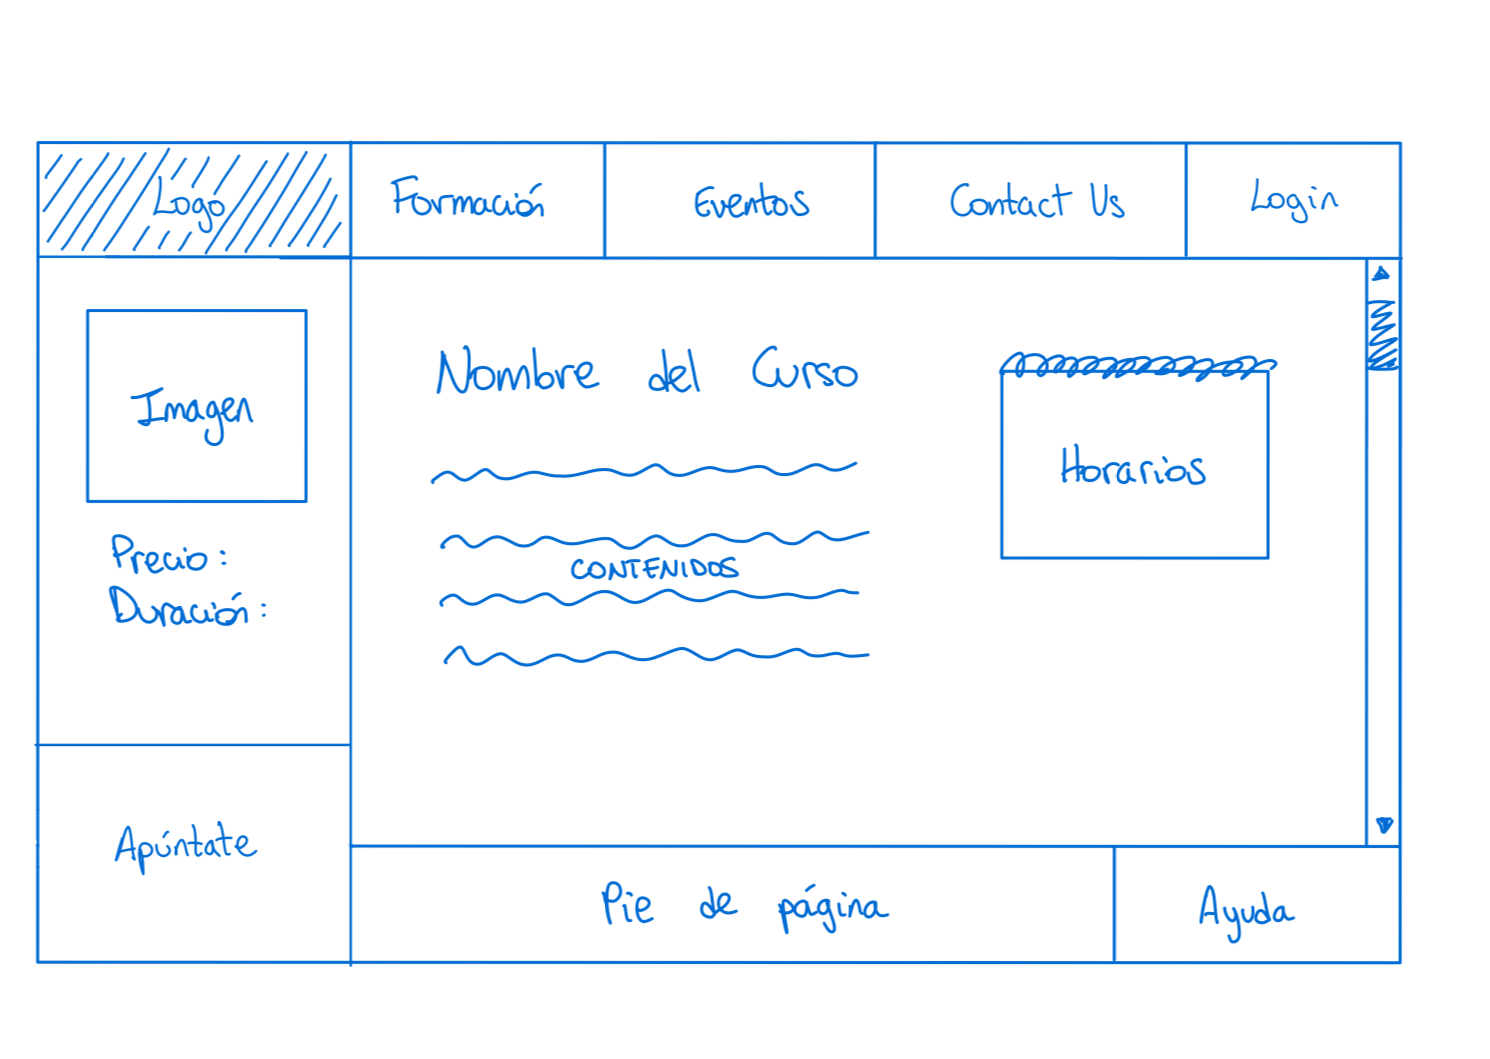 Logo
Formación
Eventos
Contact Us
Login
Imagen
Precio:
Duración:
Apúntate
Nombre del Curso
CONTENIDOS
Horarios
Pie de página
Ayuda